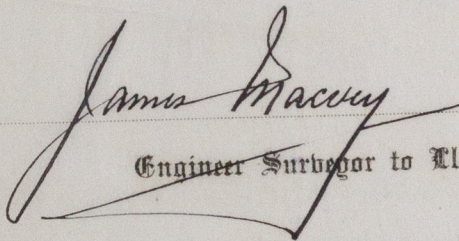 James
Engineer Surveyor to Ll